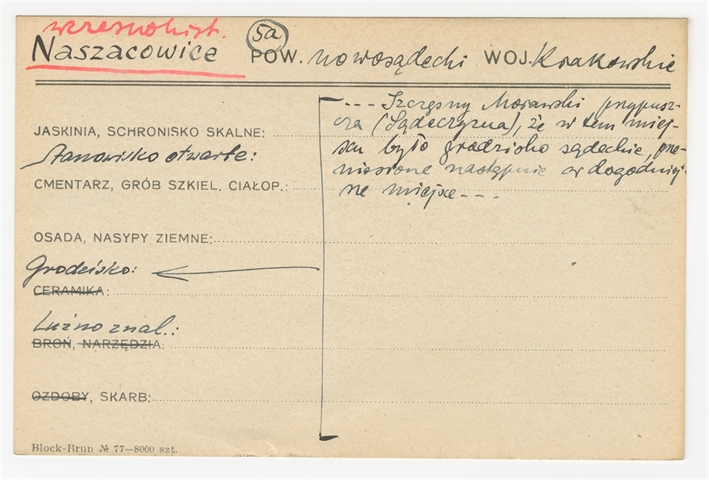 wczesnohist.
5a
Naszacowice POW. nowosądecki WOJ. Krakowskie
--- Szczęsny Morawski przypusz-
cza (Sądecczyzna), że w tem miej-
scu było grodzisko sądeckie, prze-
niesione następnie w dogodniej-
sze miejsce ---
JASKINIA, SCHRONISKO SKALNE:
Stanowisko otwarte:
CMENTARZ, GRÓB SZKIEL. CIAŁOP.:
OSADA, NASYPY ZIEMNE:
Grodzisko:
CERAMIKA:
Luźno znal.:
BROŃ, NARZĘDZIA:
OZDOBY, SKARB:
Block-Brun № 77—8000 szt.